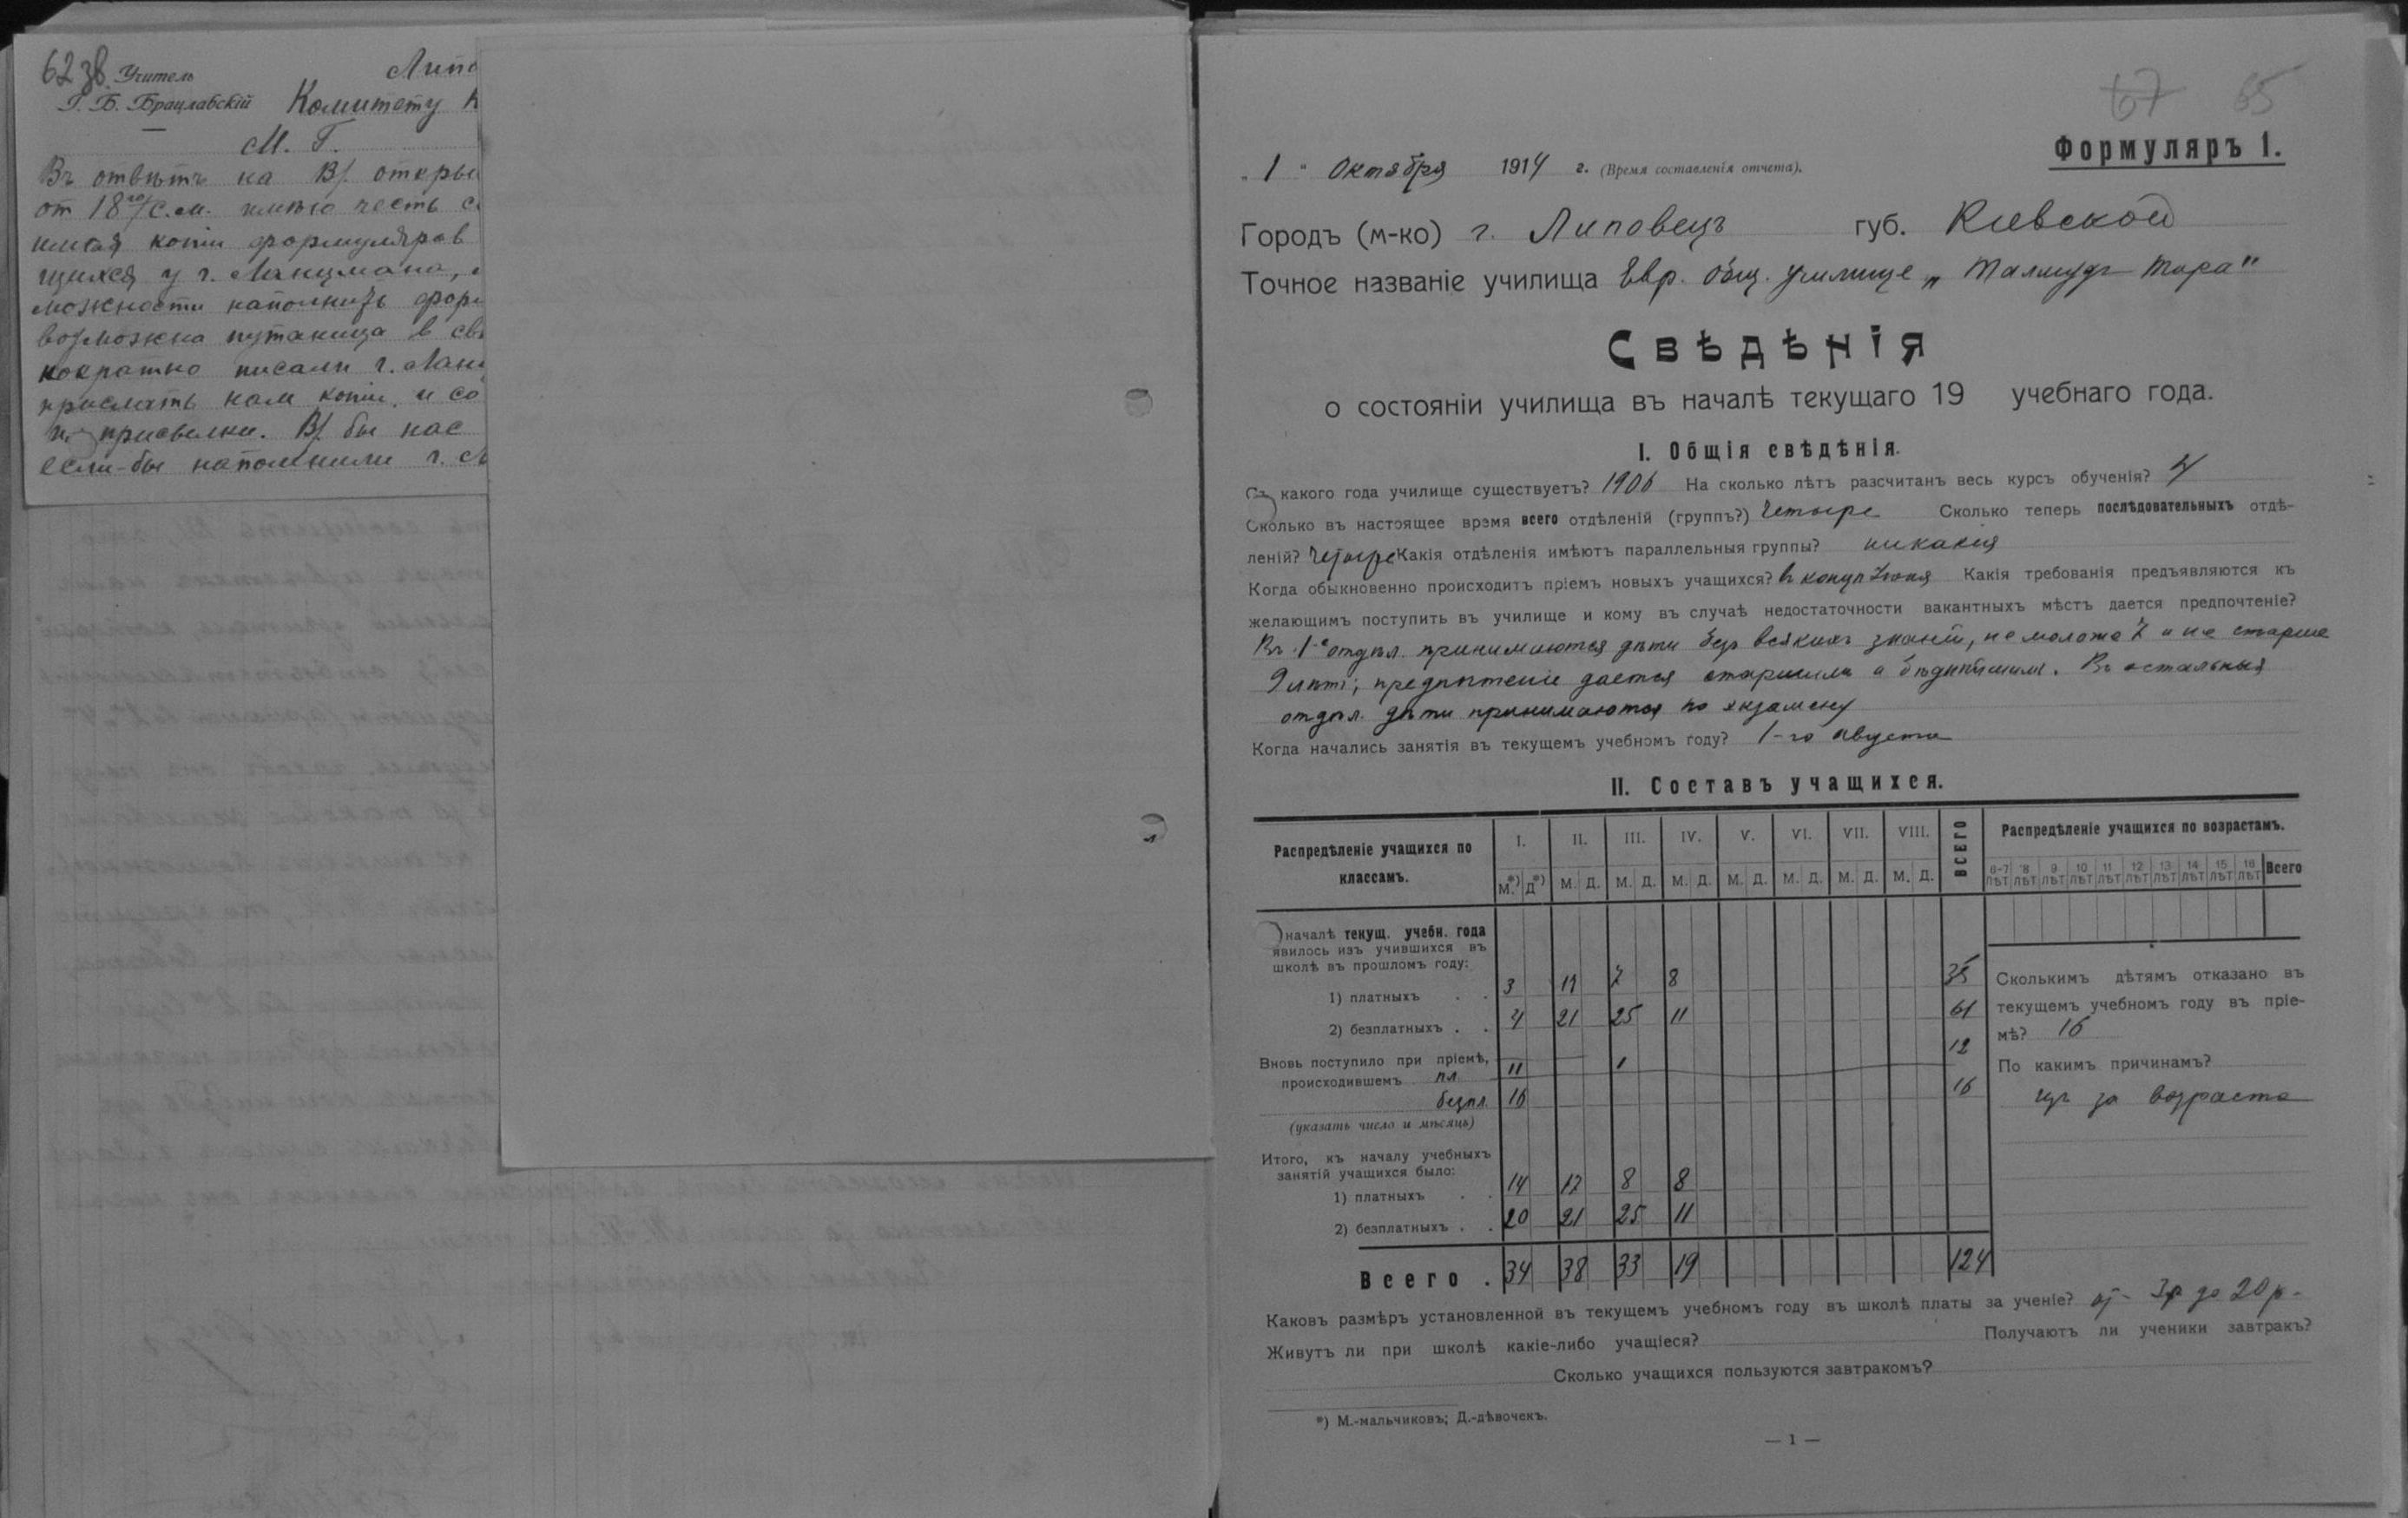 62 зв.
Учитель
Г. Б. Брацлавскій
Липо
Комитету
М. Г.
Въ отвѣтъ на В/. откры
от 18го/с.м. имѣю честь с
копіи формуляров
щихся у г. Ланцмана,
можности наполнить фор
возможна путаница в св
кократно писали г. Лан
прислать нам копіи, и со
присылки. В/. бы нас
если-бы напомнили г. Л
67 65
Формуляръ 1.
„ 1 " Октября 1914 г. (Время составленія отчета).
Городъ (м-ко) г. Липовецъ губ. Кіевской
Точное названіе училища Евр. общ. училище „Талмудъ Тора"
Свѣдѣнія
о состояніи училища въ началѣ текущаго 19 учебнаго года.
I. Общія свѣдѣнія.
Съ какого года училище существуетъ? 1906 На сколько лѣтъ разсчитанъ весь курсъ обученія? 4
Сколько въ настоящее время всего отдѣленій (группъ?) Четыре Сколько теперь послѣдовательныхъ отдѣ-
леній? Четыре Какія отдѣленія имѣютъ параллельныя группы? никакія
Когда обыкновенно происходитъ пріемъ новыхъ учащихся? в концѣ Іюня Какія требованія предъявляются къ
желающимъ поступить въ училище и кому въ случаѣ недостаточности вакантныхъ мѣстъ дается предпочтеніе?
Въ 1е отдѣл. принимаются дѣти безъ всякихъ знаній, не моложе 7 и не старше
9 лѣтъ; предпочтеніе дается старшимъ и бѣднѣйшимъ. Въ остальныя
отдѣл. дѣти принимаются по экзамену
Когда начались занятія въ текущемъ учебномъ году? 1-го августа
II. Составъ учащихся.
Распредѣленіе учащихся по классамъ. I. II. III. IV. V. VI. VII. VIII. ВСЕГО Распредѣленіе учащихся по возрастамъ.
М.*) Д*) М. Д. М. Д. М. Д. М. Д. М. Д. М. Д. М. Д. 6-7 лѣт 8 лѣт 9 лѣт 10 лѣт 11 лѣт 12 лѣт 13 лѣт 14 лѣт 15 лѣт 16 лѣт Всего
началѣ текущ. учебн. года
явилось изъ учившихся въ
школѣ въ прошломъ году:
1) платныхъ . . 3 17 7 8 35
2) безплатныхъ . . 4 21 25 11 61
Вновь поступило при пріемѣ,
происходившемъ пл. 11 1 12
безпл. 16 16
(указать число и мѣсяцъ)
Итого, къ началу учебныхъ
занятій учащихся было:
1) платныхъ . . 14 17 8 8
2) безплатныхъ . . 20 21 25 11
Всего . 34 38 33 19 124
Сколькимъ дѣтямъ отказано въ
текущемъ учебномъ году въ пріе-
мѣ? 16
По какимъ причинамъ?
изъ за возраста
Каковъ размѣръ установленной въ текущемъ учебномъ году въ школѣ платы за ученіе? от 3р до 20 р.
Живутъ ли при школѣ какіе-либо учащіеся? Получаютъ ли ученики завтракъ?
Сколько учащихся пользуются завтракомъ?
*) М.-мальчиковъ; Д.-дѣвочекъ.
— 1 —